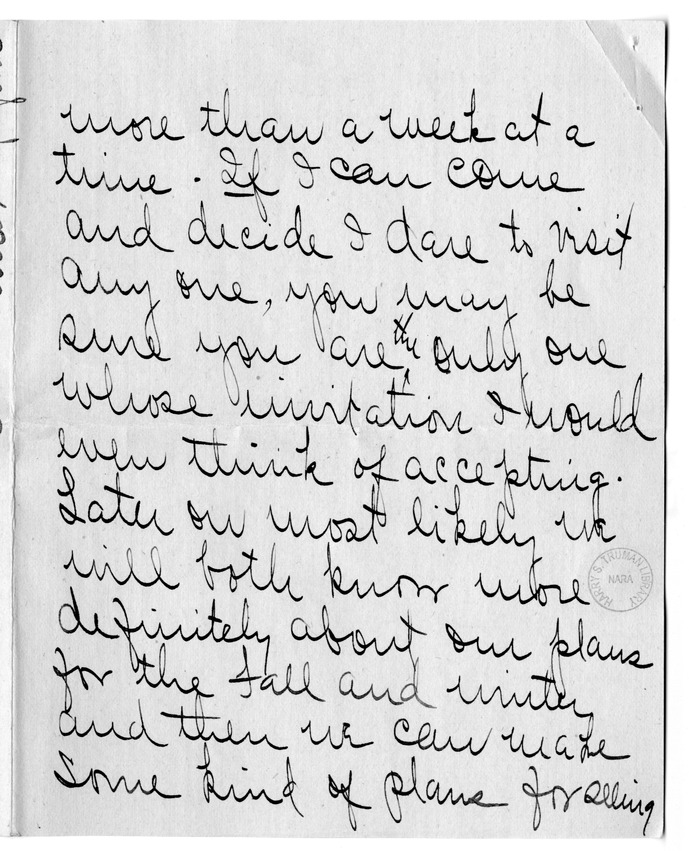 more than a week at a
time. If I can come
and decide I dare to visit
any one, you may be
sure you are the only one
whose invitation I would
even think of accepting.
Later on most likely we
will both know more
definitely about our plans
for the Fall and winter
and then we can make
some kind of plans for seeing
HARRY S. TRUMAN LIBRARY
NARA